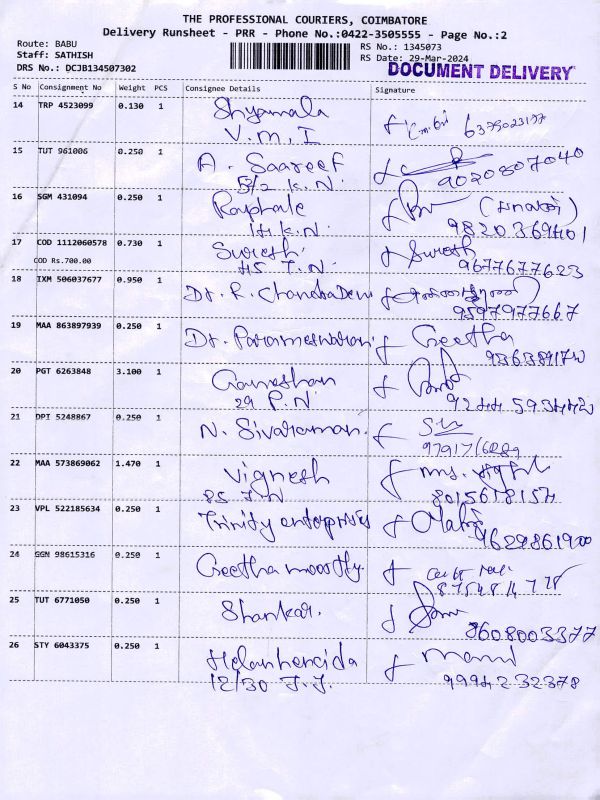 THE PROFESSIONAL COURIERS, COIMBATORE
Delivery Runsheet - PRR - Phone No.:0422-3505555 - Page No.:2
Route: BABU
Staff: SATHISH
DRS No.: DCJB134507302
RS No.: 1345073
RS Date: 29-Mar-2024
DOCUMENT DELIVERY
S No Consignment No Weight PCS Consignee Details Signature
14 TRP 4523099 0.130 1 Shyamala
V.M.I
15 TUT 961006 0.250 1 A. Saareef 9020807040
5/2 K.N.
16 SGM 431094 0.250 1 Rayphale
14 K.N. 9820369401
17 COD 1112060578 0.730 1 Suresh Suresh
COD Rs.700.00 45 T.N. 9677677623
18 IXM 506037677 0.950 1 Dr. R. ChandraDevi
9597977667
19 MAA 863897939 0.250 1 Dr. Parameshwaran Geetha
20 PGT 6263848 3.100 1 Ganeshan
29 P.N. 9244593442
21 DPI 5248867 0.250 1 N. Sivaraman.
22 MAA 573869062 1.470 1 Vignesh Ms.
85 J.N 8015618154
23 VPL 522185634 0.250 1 Trinity enterprises
9629861900
24 GGN 98615316 0.250 1 Geetha moorthy.
25 TUT 6771050 0.250 1 Shankar.
8608003377
26 STY 6043375 0.250 1 Helanhencida Mani
12/30 J.J. 9994232378